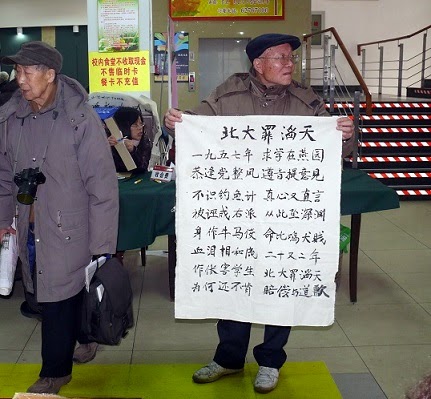 校内食堂不收取现金
不售临时卡
餐卡不充值
北大罪滔天
一九五七年 求学在燕园
恭逢党整风 遵旨提意见
不识钓鱼计 真心又直言
被诬成右派 从此坠深渊
身作牛马役 命比鸡犬贱
血泪相和流 二十又二年
作伥害学生 北大罪滔天
为何还不肯 赔偿与道歉